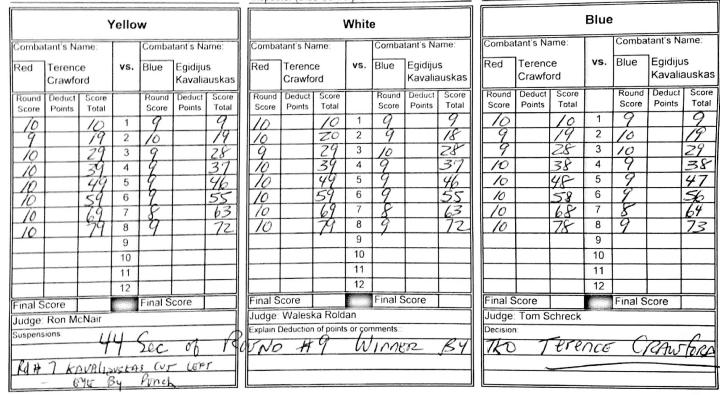 Yellow
Combatant's Name: Combatant's Name:
Red Terence Crawford vs. Blue Egidijus Kavaliauskas
Round Score Deduct Points Score Total Round Score Deduct Points Score Total
10 10 1 9 9
9 19 2 10 19
10 29 3 9 28
10 39 4 9 37
10 49 5 9 46
10 59 6 9 55
10 69 7 8 63
10 79 8 9 72
9
10
11
12
Final Score Final Score
Judge: Ron McNair
Suspensions
White
Combatant's Name: Combatant's Name:
Red Terence Crawford vs. Blue Egidijus Kavaliauskas
Round Score Deduct Points Score Total Round Score Deduct Points Score Total
10 10 1 9 9
10 20 2 9 18
9 29 3 10 28
10 39 4 9 37
10 49 5 9 46
10 59 6 9 55
10 69 7 8 63
10 79 8 9 72
9
10
11
12
Final Score Final Score
Judge: Waleska Roldan
Explain Deduction of points or comments
Blue
Combatant's Name: Combatant's Name:
Red Terence Crawford vs. Blue Egidijus Kavaliauskas
Round Score Deduct Points Score Total Round Score Deduct Points Score Total
10 10 1 9 9
9 19 2 10 19
9 28 3 10 29
10 38 4 9 38
10 48 5 9 47
10 58 6 9 56
10 68 7 8 64
10 78 8 9 73
9
10
11
12
Final Score Final Score
Judge: Tom Schreck
Decision:
44 Sec of Round #9 Winner By TKO Terence Crawford
Rd # 7 Kavaliauskas cut left
eye By Punch